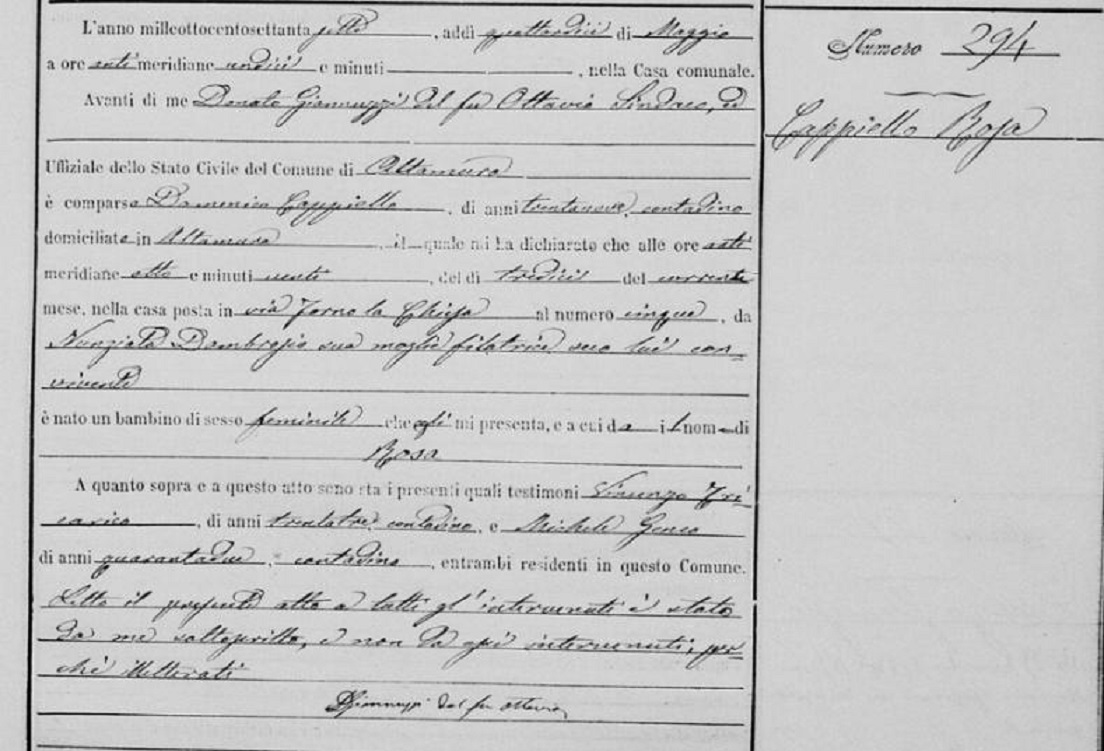 L'anno milleottocentosettanta sette, addì quattordici di Maggio
a ore anti meridiane undici e minuti , nella Casa comunale.
Avanti di me Donato Giannuzzi del fu Ottavio Sindaco, ed
Uffiziale dello Stato Civile del Comune di Altamura
è comparso Domenico Cappiello, di anni trentanove, contadino
domiciliato in Altamura, il quale mi ha dichiarato che alle ore anti
meridiane otto e minuti venti, del dì tredici del corrente
mese, nella casa posta in via Forno la Chiesa al numero cinque, da
Nunziata Dambrosio sua moglie filatrice, seco lui con=
vivente
è nato un bambino di sesso feminile che egli mi presenta, e a cui dà il nome di
Rosa
A quanto sopra e a questo atto sono stati presenti quali testimoni Vincenzo Tri=
carico, di anni trentatre, contadino, e Michele Genco
di anni quarantadue, contadino, entrambi residenti in questo Comune.
Letto il presente atto a tutti gl'intervenuti è stato
da me sottoscritto, e non da essi intervenuti, per
chè illetterati
DGiannuzzi del fu Ottavio
Numero 294
Cappiello Rosa